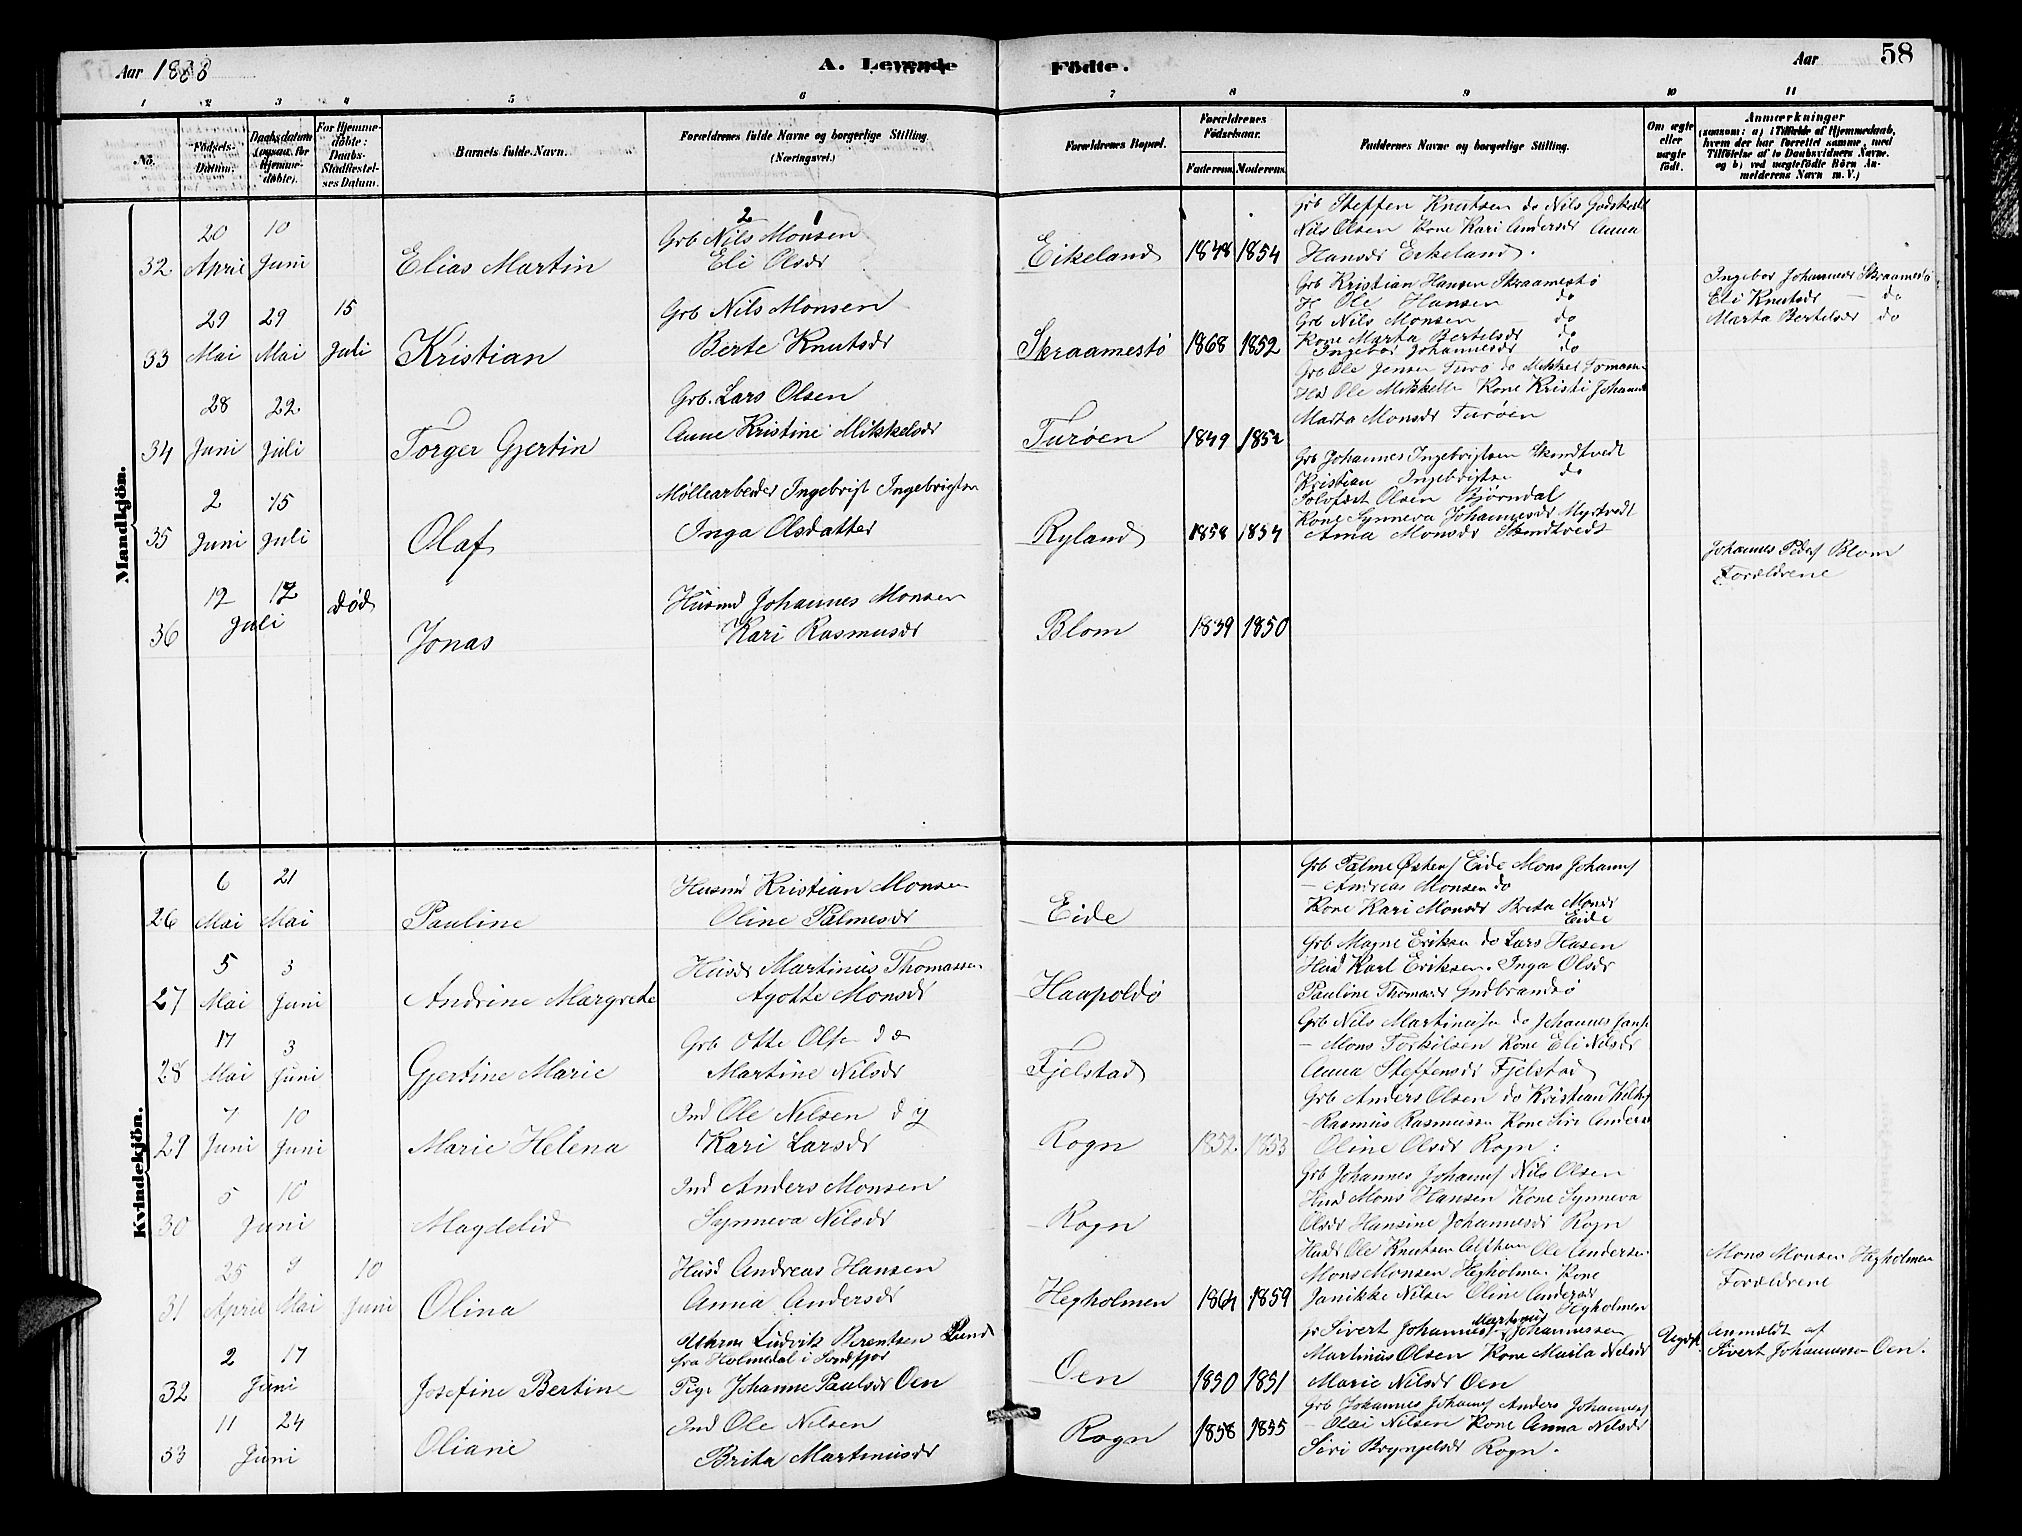 Aar 1888
A. Levende Födte.
Aar
58
1 2 3 4 5 6 7 8 9 10 11
No.
Födsels-Datum.
Daabsdatum (ogsaa for Hjemme-döbte).
For Hjemme-döbte: Daabs-Stadfæstel-ses Datum.
Barnets fulde Navn.
Forældrenes fulde Navne og borgerlige Stilling. (Næringsvei.)
Forældrenes Bopæl.
Forældrenes Födselsaar.
Faderens. Moderens.
Faddernes Navne og borgerlige Stilling.
Om ægte eller uægte födt.
Anmærkninger
(saasom: a) i Tilfælde af Hjemmedaab, hvem der har forrettet samme, med Tilföielse af to Daabsvidners Navne, og b) ved uægtefödte Börn An-melderens Navn m. V.)
Mandkjön.
32 20 April 10 Juni Elias Martin
Grb Nils Monsen 2 1
Eli Olsdr
Eikeland 1848 1854
Grb Steffen Knutsen do Nils Godskalk
Nils Olsen Kone Kari Andersdr Anna
Hansdr Eikeland.
33 29 Mai 29 Mai 15 Juli Kristian
Grb Nils Monsen
Berte Knutsdr
Skraamestø 1868 1852
Grb Kristian Hansen Skraamestø
H Ole Hansen do
Grb Nils Monsen do
Kone Marta Bertelsdr do
Ingebor Johannesdr do
Ingebor Johannesdr Skraamestø
Eli Knutsdr — do
Marta Bertelsdr do
34 28 Juni 22 Juli Torger Gjertin
Grb. Lars Olsen
Anne Kristine Mikkelsdr
Turøen 1849 1852
Grb Ole Jensen Turø do Mikkel Tomassen
Hd Ole Mikkels Kone Kristi Johannes
Marta Monsdr Turøen
35 2 Juni 15 Juli Olaf
Møllearbeider Ingebrigt Ingebrigtsen
Inga Olsdatter
Ryland 1858 1854
Grb Johannes Ingebrigtsen Skendtvedt
Kristian Ingebrigtsen do
Olsen Bjørndal
Kone Synneva Johannesdr Myrtvedt
Anna Monsdr Skendtvedt
36 12 17 Juli død Jonas
Husmd Johannes Monsen
Kari Rasmusdr
Blom 1839 1850
Johannes Peders Blom
Forældrene
Kvindekjön.
26 6 Mai 21 Mai Pauline
Husmd Kristian Monsen
Oline Palmesdr
Eide
Grb Palme Østens Eide Mons Johanns
— Andreas Monsen do
Kone Kari Monsdr Brita Monsdr
Eide
27 5 Mai 3 Juni Andrine Margrete
Husdr Martinus Thomassen
Agotte Monsdr
Haapoldø
Grb Magne Eriksen do Lars Hansen
Husd Karl Eriksen. Inga Olsdr
Pauline Thomasdr Gudbrandsø
28 17 Mai 3 Juni Gjertine Marie
Grb Otte Olsen d æ
Martine Nilsdr
Fjelstad
Grb Nils Martinusen do Johannes Hans
— Mons Torkilsen Kone Eli Nilsdr
Anna Steffensdr Fjelstad
29 7 Juni 10 Juni Marie Helena
Ind Ole Nilsen d y
Kari Larsdr
Rogn 1852 1853
Grb Anders Olsen do Kristian
- Rasmus Rasmussen Kone Siri Andersdr
Oline Olsdr Rogn:
30 5 10 Juni Magdeli
Ind Anders Monsen
Synneva Nilsdr
Rogn
Grb Johannes Johanns Nils Olsen
Husd Mons Hansen Kone Synneva
Olsdr Hansine Johannesdr Rogn
31 25 April 9 Mai 10 Juni Olina
Husd Andreas Hansen
Anna Andersdr
Hegholmen 1864 1859
Husdr Ole Knutsen Ole Andersen
Mons Monsen Hegholmen Kone
Janikke Nilsen Oline Andersdr
Hegholmen
Mons Monsen Hegholmen
Forældrene
32 2 17 Juni Josefine Bertine
Ludvik Berentsen Lund
fra Holmedal i Sondfjor
Pige Johanne Paulsdr Oen
Oen 1850 1851
gr Sivert Johannes Martinus Johannessen
Martinus Olsen Kone Marta Nilsdr
Marie Nilsdr Oen
Uegte
Anmeldt af
Sivert Johannessen Oen.
33 11 24 Juni Oliane
Ind Ole Nilsen
Brita Martinusdr
Rogn 1858 1855
Grb Johannes Johanns Anders Johannes
— Olai Nilsen Kone Anna Nilsdr
Siri Brynjelsdr Rogn.